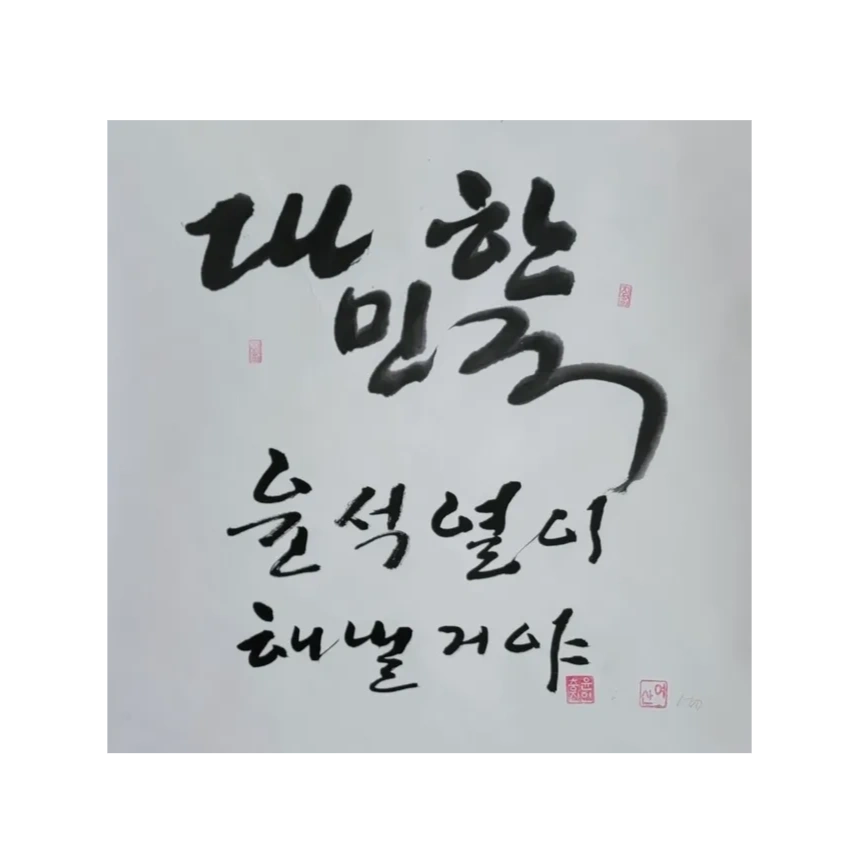 대한민국
윤석열이
해낼거야